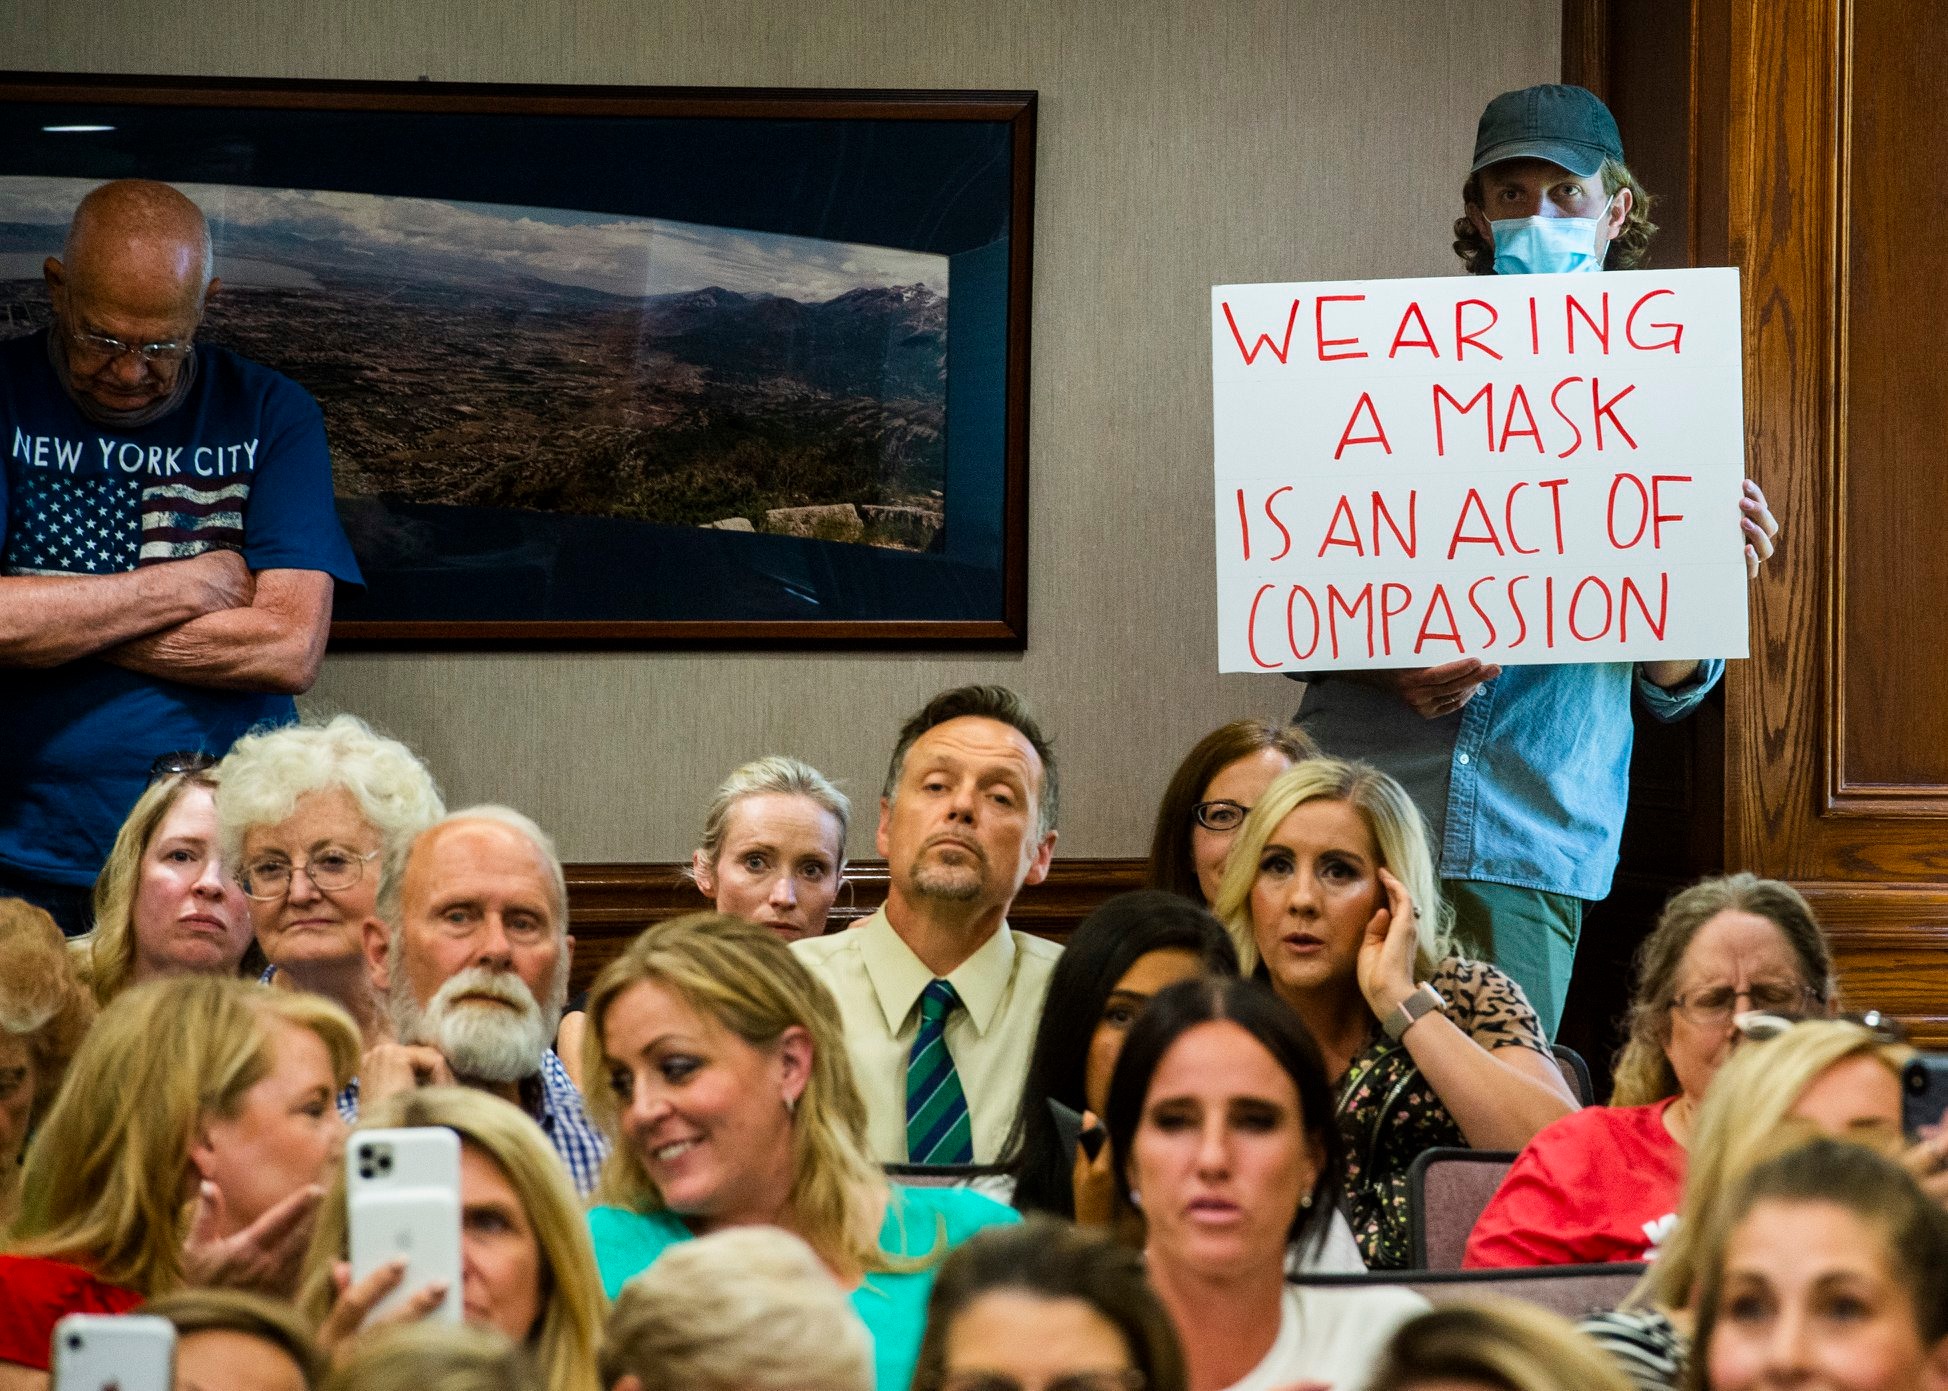 NEW YORK CITY
WEARING
A MASK
IS AN ACT OF
COMPASSION